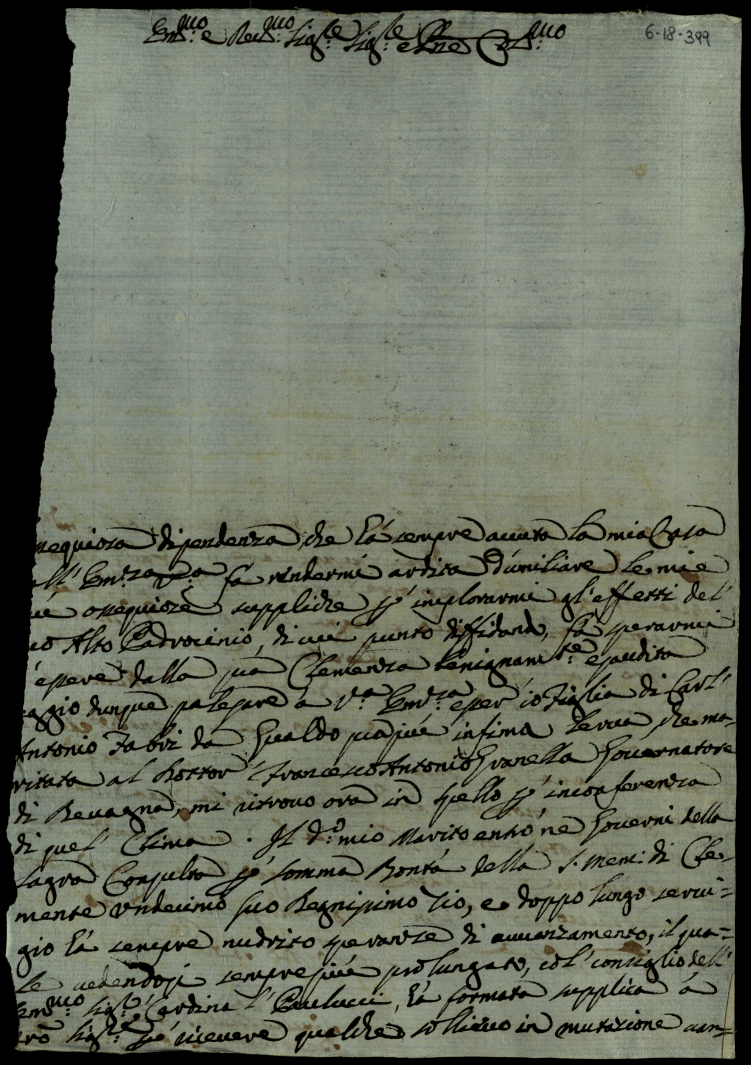 Em.mo e Reu.mo Sig.re Sig.re e Pne Col.mo
6-18-399
ossequiosa dipendenza che hà sempre auuta la mia Casa
all' Em.za V.a fà rendermi ardita d'umiliare le mie
ossequiose suppliche p' implorarmi gl'effetti del
suo Alto Padrocinio, di cui punto diffidando, fà sperarmi
d'essere dalla sua Clemenza benignam.te esaudita
dunque palesare à V.a Em.za esser' io Figlia di Carl'
Antonio Fabri da Gualdo sua più infima serua, che ma-
ritata al Dottor' Francesco Antonio Granella Gouernatore
di Beuagna, mi ritrouo ora in Spello p' inconferenza
di quel Clima. Il d.o mio Marito entrò ne Gouerni della
Sagra Consulta p' somma Bontà della S. Mem: di Cle-
mente Undecimo suo Degnissimo Zio, e doppo lungo serui-
gio hà sempre nudrito speranze di auuanzamento, il qua-
le uedendosi sempre più prolungato, col' consiglio dell'
Em.mo Sig.r Cardinal' Paulucci, hà formata supplica à
Sig.re p' riceuere qualche sollieuo in mutazione uan-